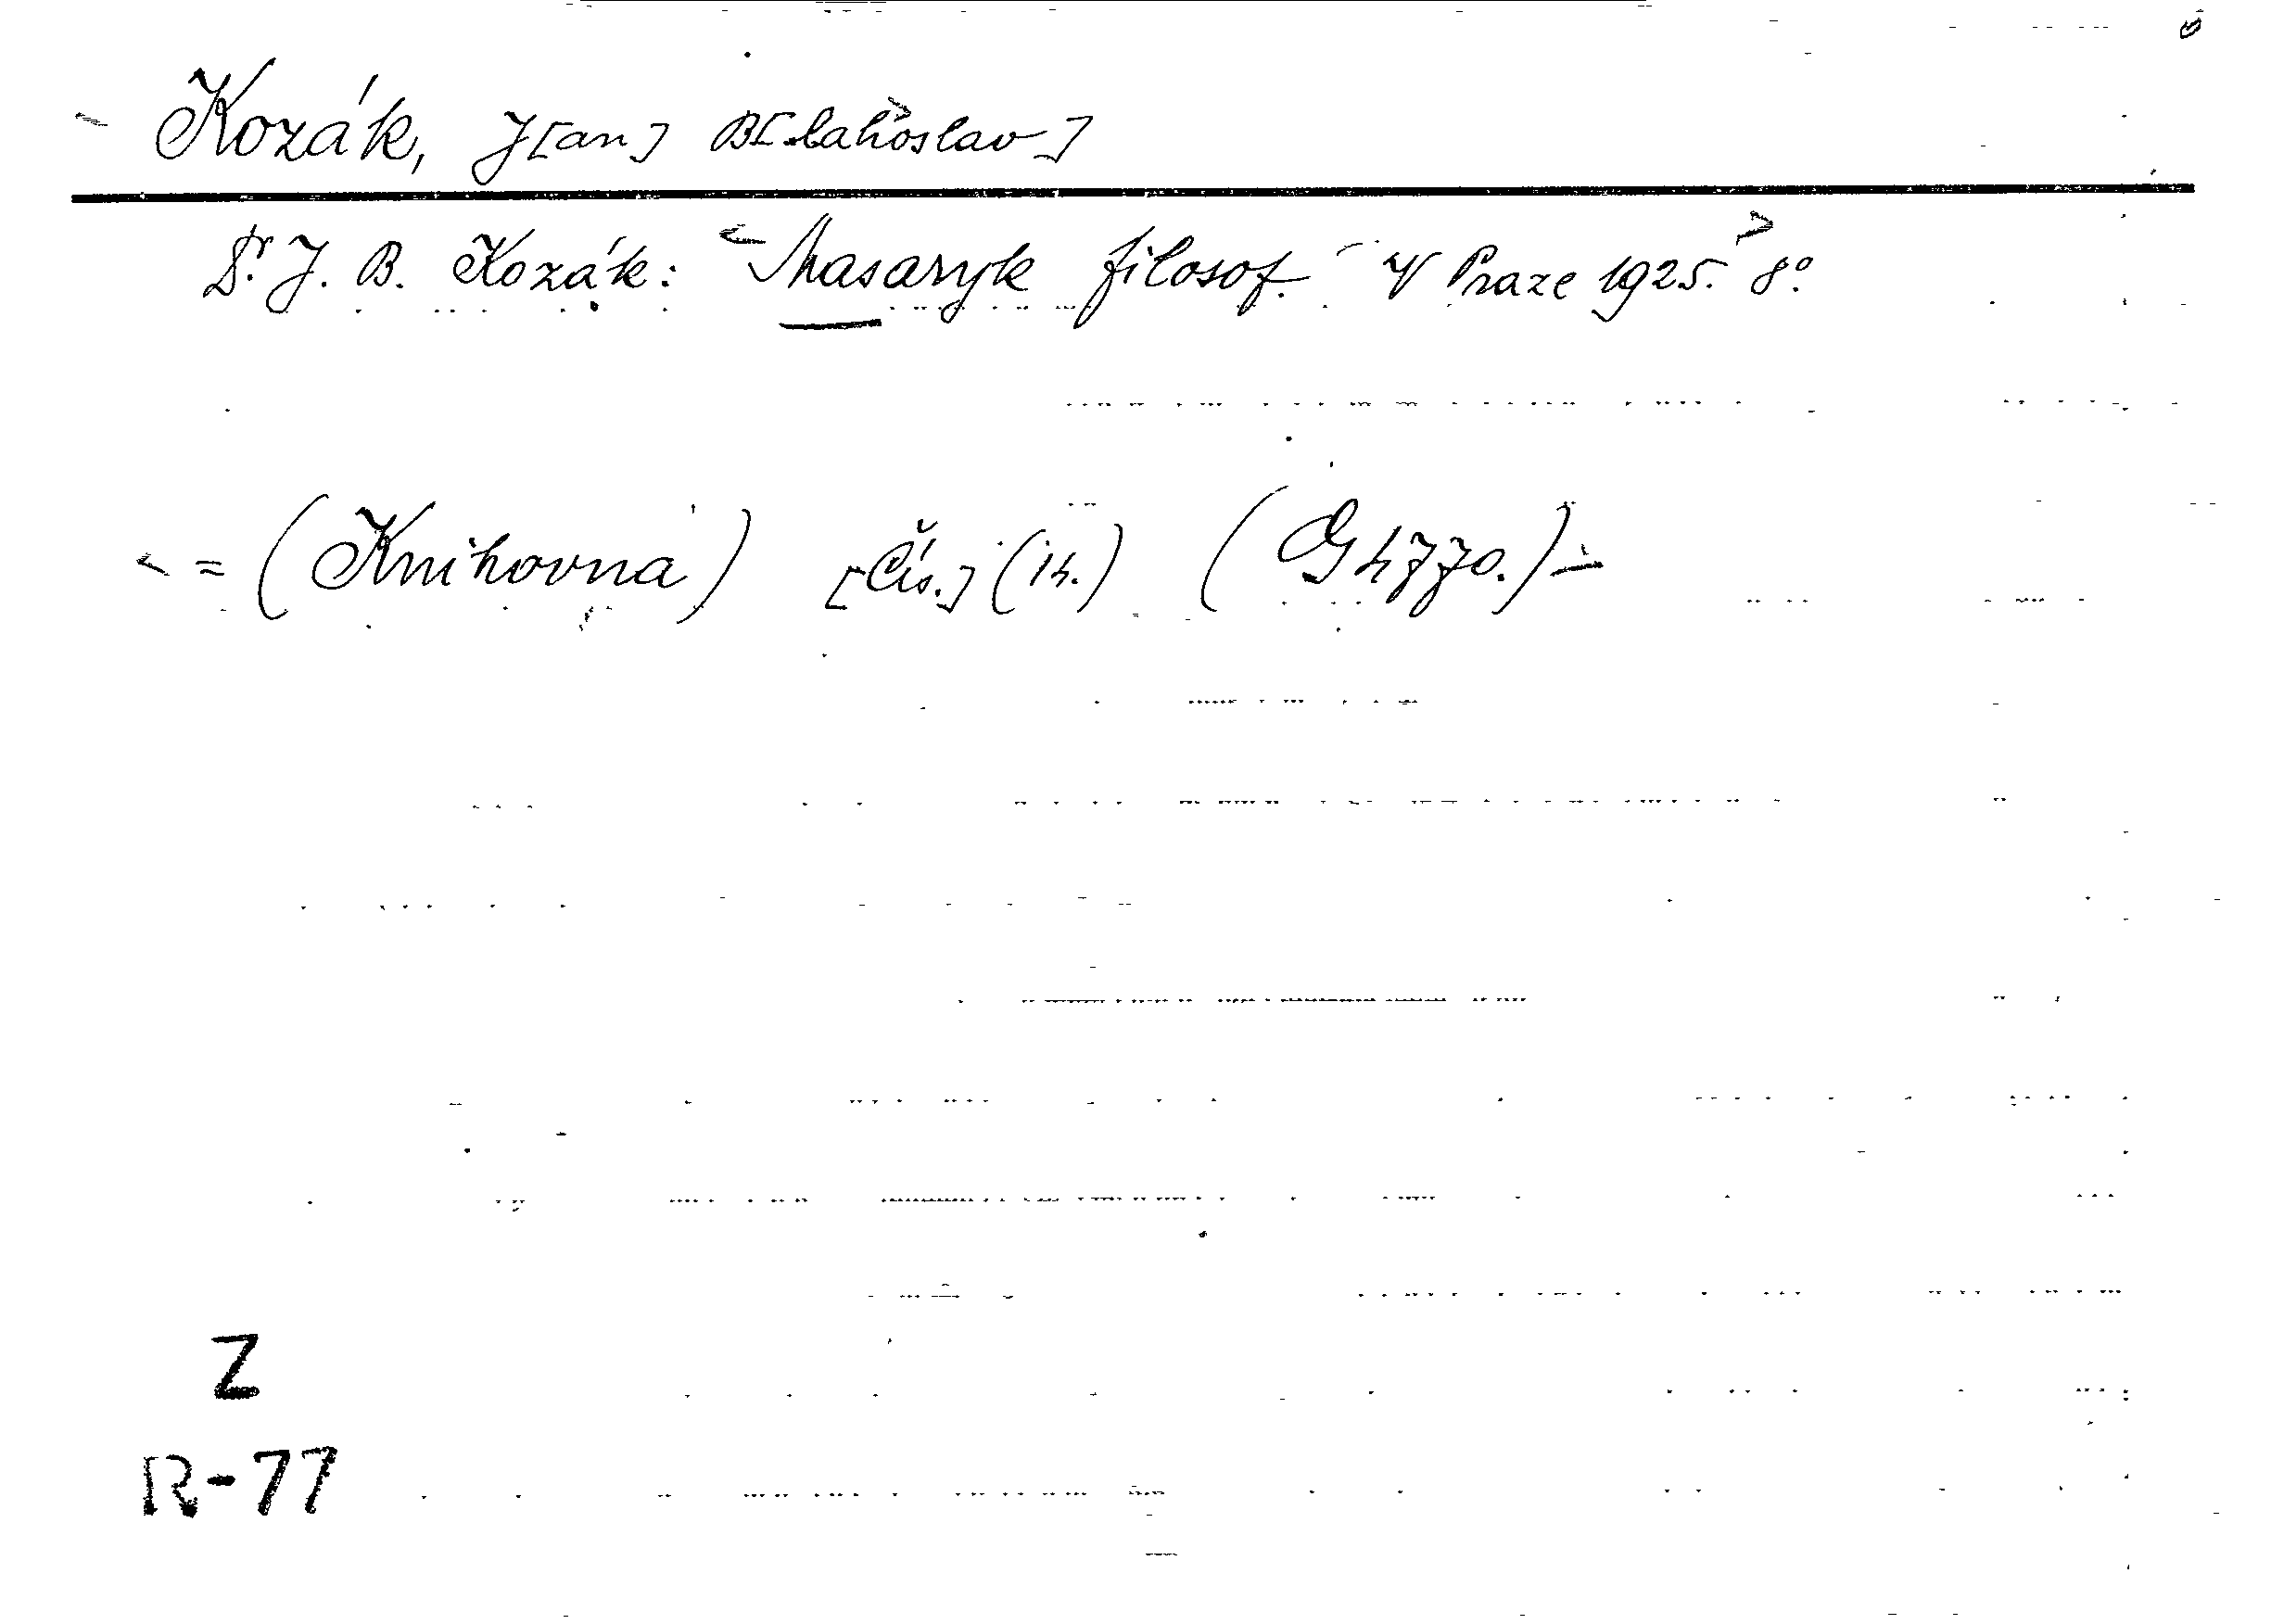 Kozák, J[an] B[lahoslav]
Dr. J. B. Kozák: Masaryk filosof. V Praze 1925. 8°.
= (Knihovna) [Čís.] (14.) (G 4770.) =
Z
R-77